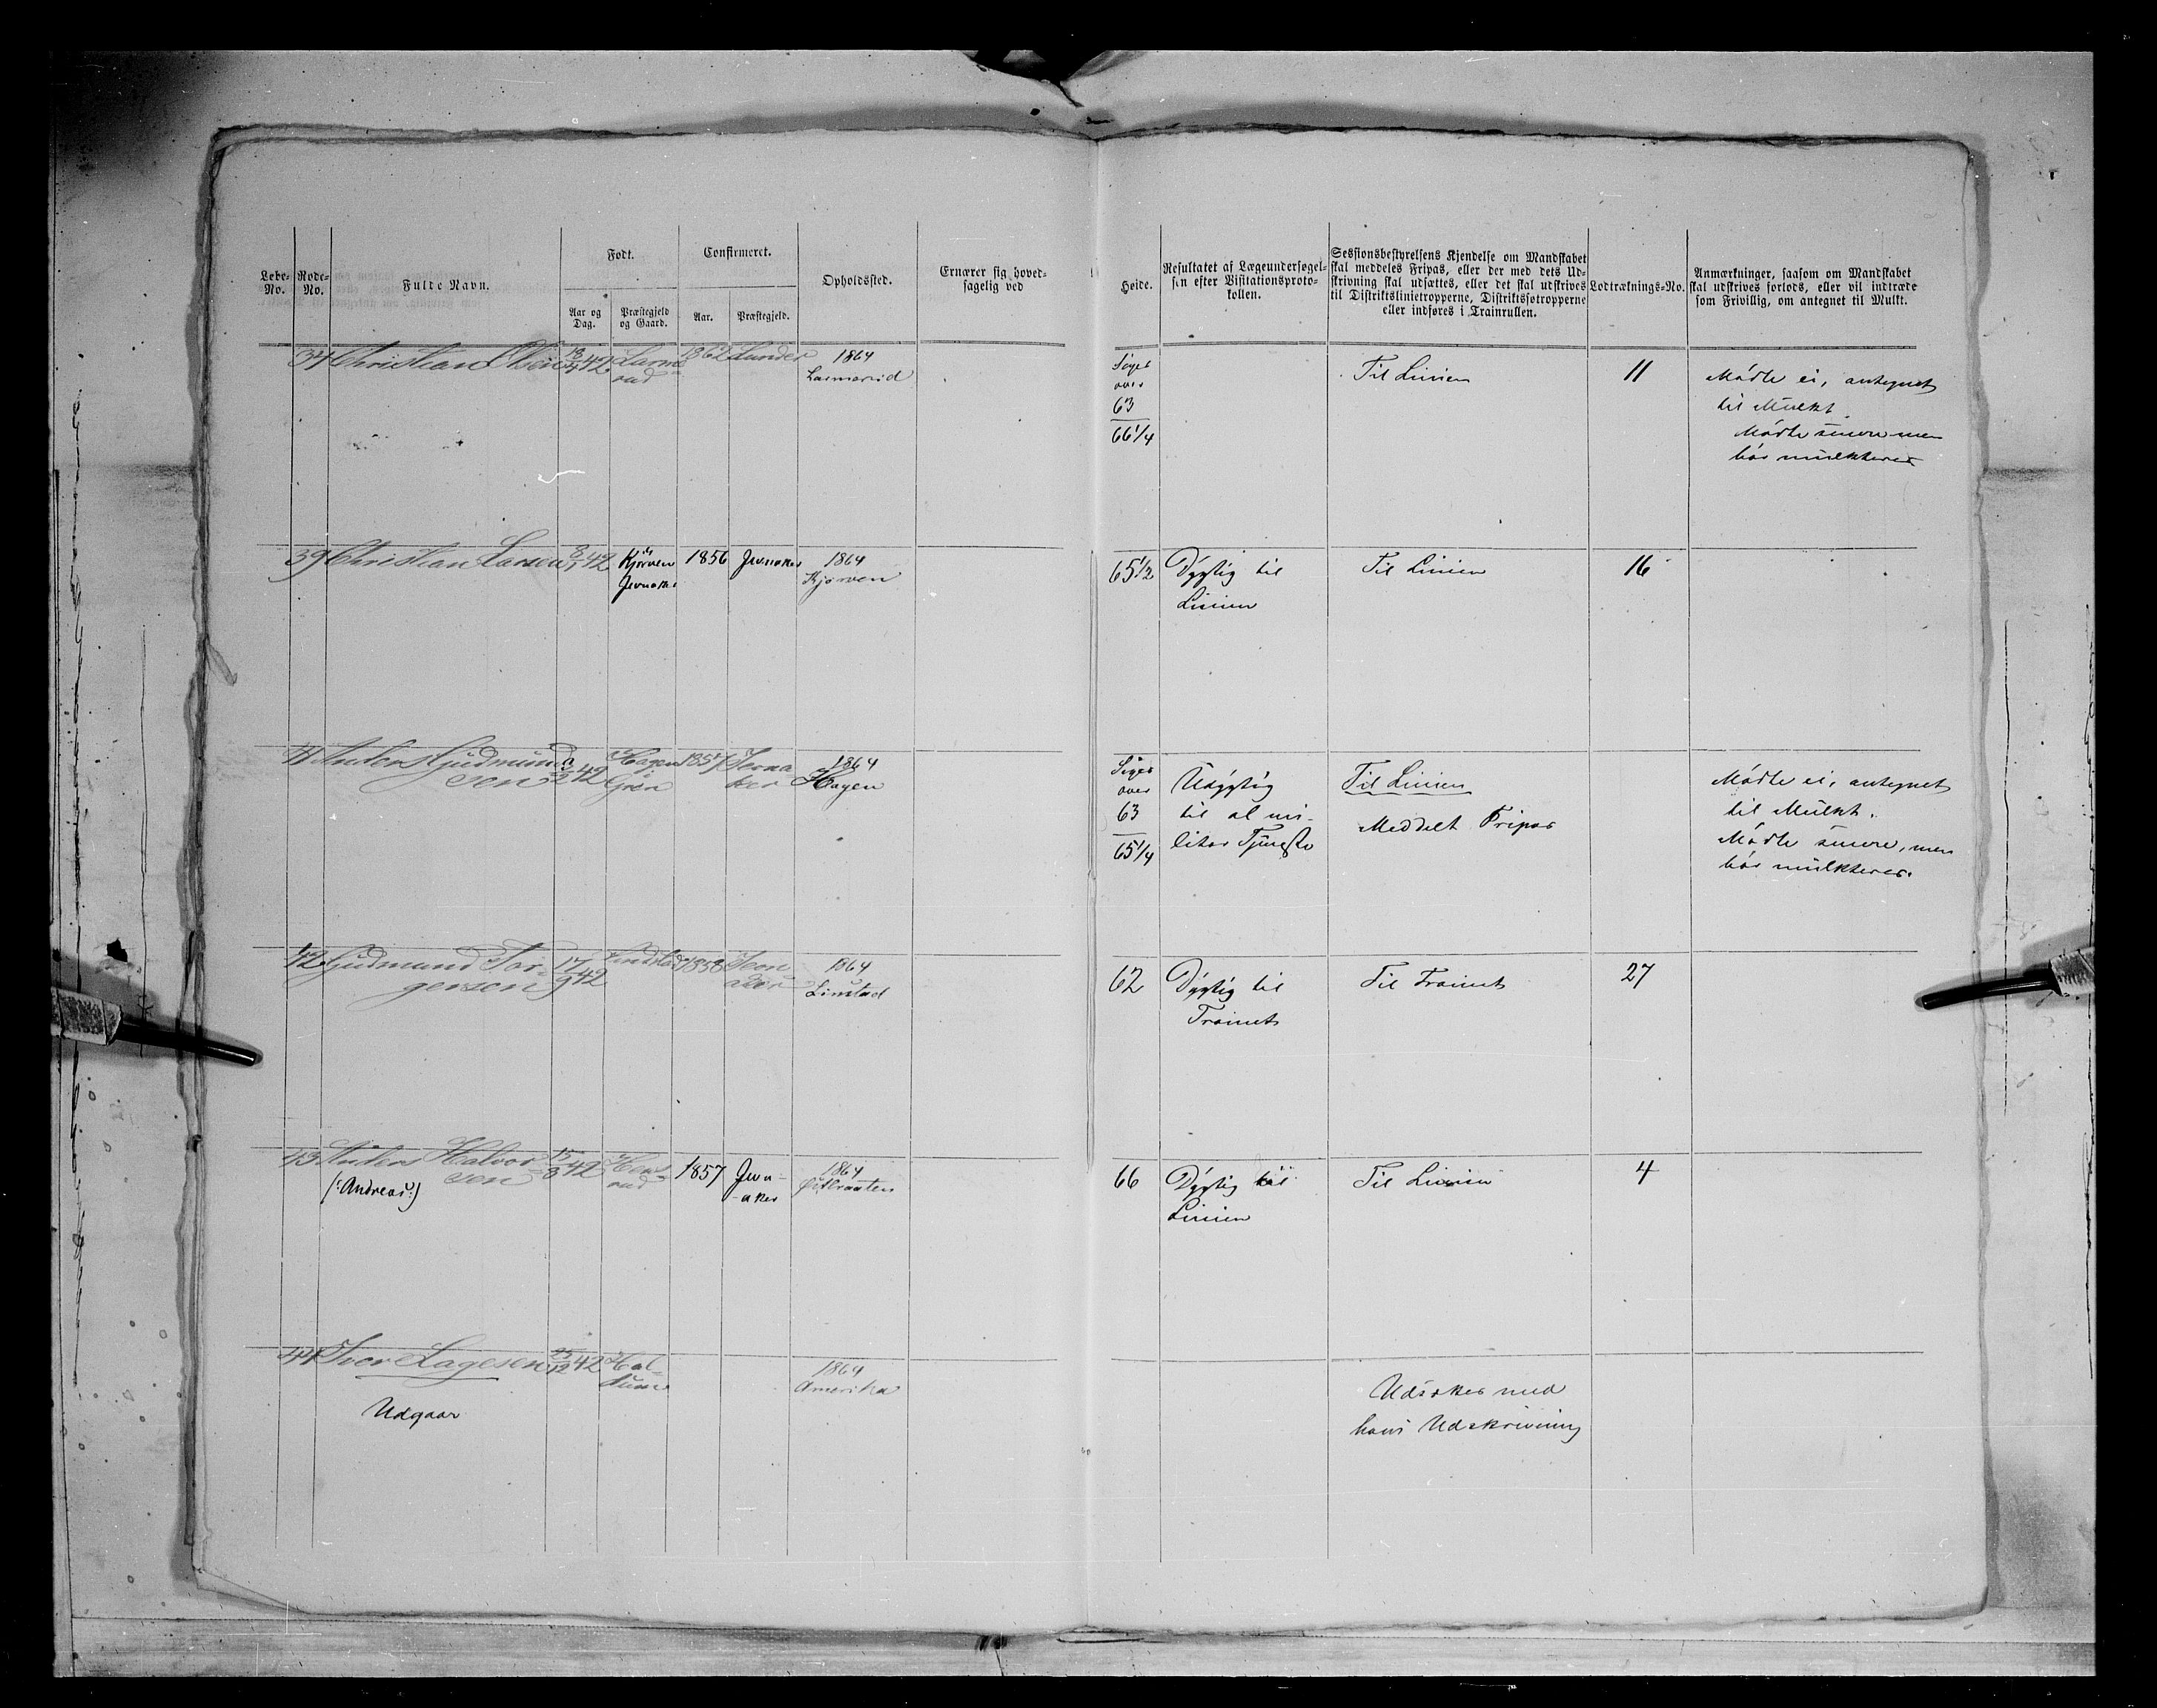 Løbe-No.
Rode-No.
Fulde Navn.
Født.
Aar og Dag.
Præstegjeld og Gaard.
Confirmeret.
Aar.
Præstegjeld.
Opholdssted.
Ernærer sig hoved-
sagelig ved
Høide.
Resultatet af Lægeundersøgel-
sen efter Visitationsproto-
kollen.
Sessionsbestyrelsens Kjendelse om Mandskabet
skal meddeles Fripas, eller der med dets Ud-
skrivning skal udsættes, eller det skal udskrives
til Distriktslinietropperne, Distriktssøtropperne
eller indføres i Trainrullen.
Lodtræknings-No.
Anmærkninger, saasom om Mandskabet
skal udskrives forlods, eller vil indtræde
som Frivillig, om antegnet til Mulkt.
34 Christian Olsen 42 1862 Lunder 1864
Siges
over
63
66 1/4
Til Linien
11
Mødte ei, antegnet
til Mulkt.
Mødte senere men
bør mulkteres
39 Christian Larsen 8/1 42 Kjørven
Jevnaker
1856 Jevnaker 1864
Kjørven
65 1/2
Dygtig til
Linien
Til Linien
16
41 Anders Gudmund
sen 42 Hagen
1857 Jevna
ker 1864
Hagen
Siges
over
63
65 1/4
Udygtig
til al mi-
litær Tjeneste
Til Linien
Meddelt Fripas
Mødte ei, antegnet
til Mulkt.
Mødte senere, men
bør mulkteres.
42 Gudmund Tor-
gersen 17/9 42 1858 Jevn
aker 1864
Limstad
62
Dygtig til
Trainet
Til Trainet
27
43 Anders Halvor
sen 15/8 42
(: Andreas :)
1857 Jevn-
-aker 1864
66
Dygtig til
Linien
Til Linien
4
44 Iver Lagesen 25/12 42
1864
Amerika
Udgaar
Udsættes med
hans Udskrivning